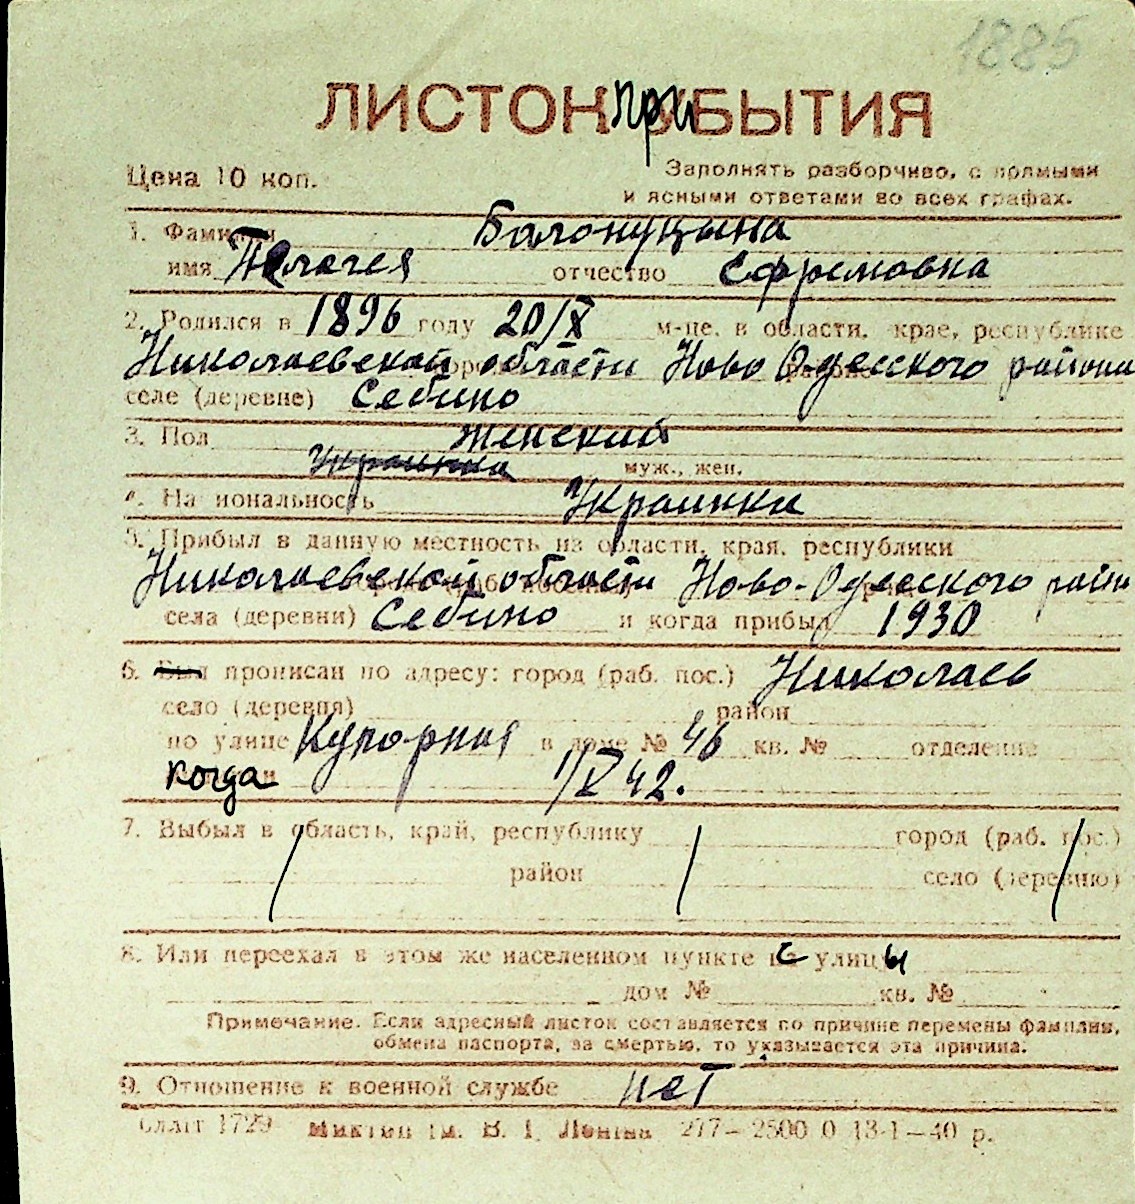 1885
ЛИСТОК ПРИБЫТИЯ
Цена 10 коп.
Заполнять разборчиво, с прямыми
и ясными ответами во всех графах.
1. Фамилия Балонуцына
имя Пелагея отчество Ефремовна
2. Родился в 1896 году 20/X м-це, в области, крае, республике
Николаевской области Ново Одесского района
селе (деревне) Себино
3. Пол женский
украинка муж., жен.
4. Национальность Украинка
5. Прибыл в данную местность из области, края, республики
Николаевской области Ново-Одесского район
села (деревни) Себино и когда прибыл 1930
6. Был прописан по адресу: город (раб. пос.) Николаев
село (деревня) район
по улице Купорная в доме № 46 кв. № отделение
когда 1/V 42.
7. Выбыл в область, край, республику город (раб. пос.)
район село (деревню)
8. Или переехал в этом же населенном пункте с улицы
дом № кв. №
Примечание. Если адресный листок составляется по причине перемены фамилии,
обмена паспорта, за смертью, то указывается эта причина.
9. Отношение к военной службе нет
1729 В. І. Леніна 277—2500 0 13-1—40 р.